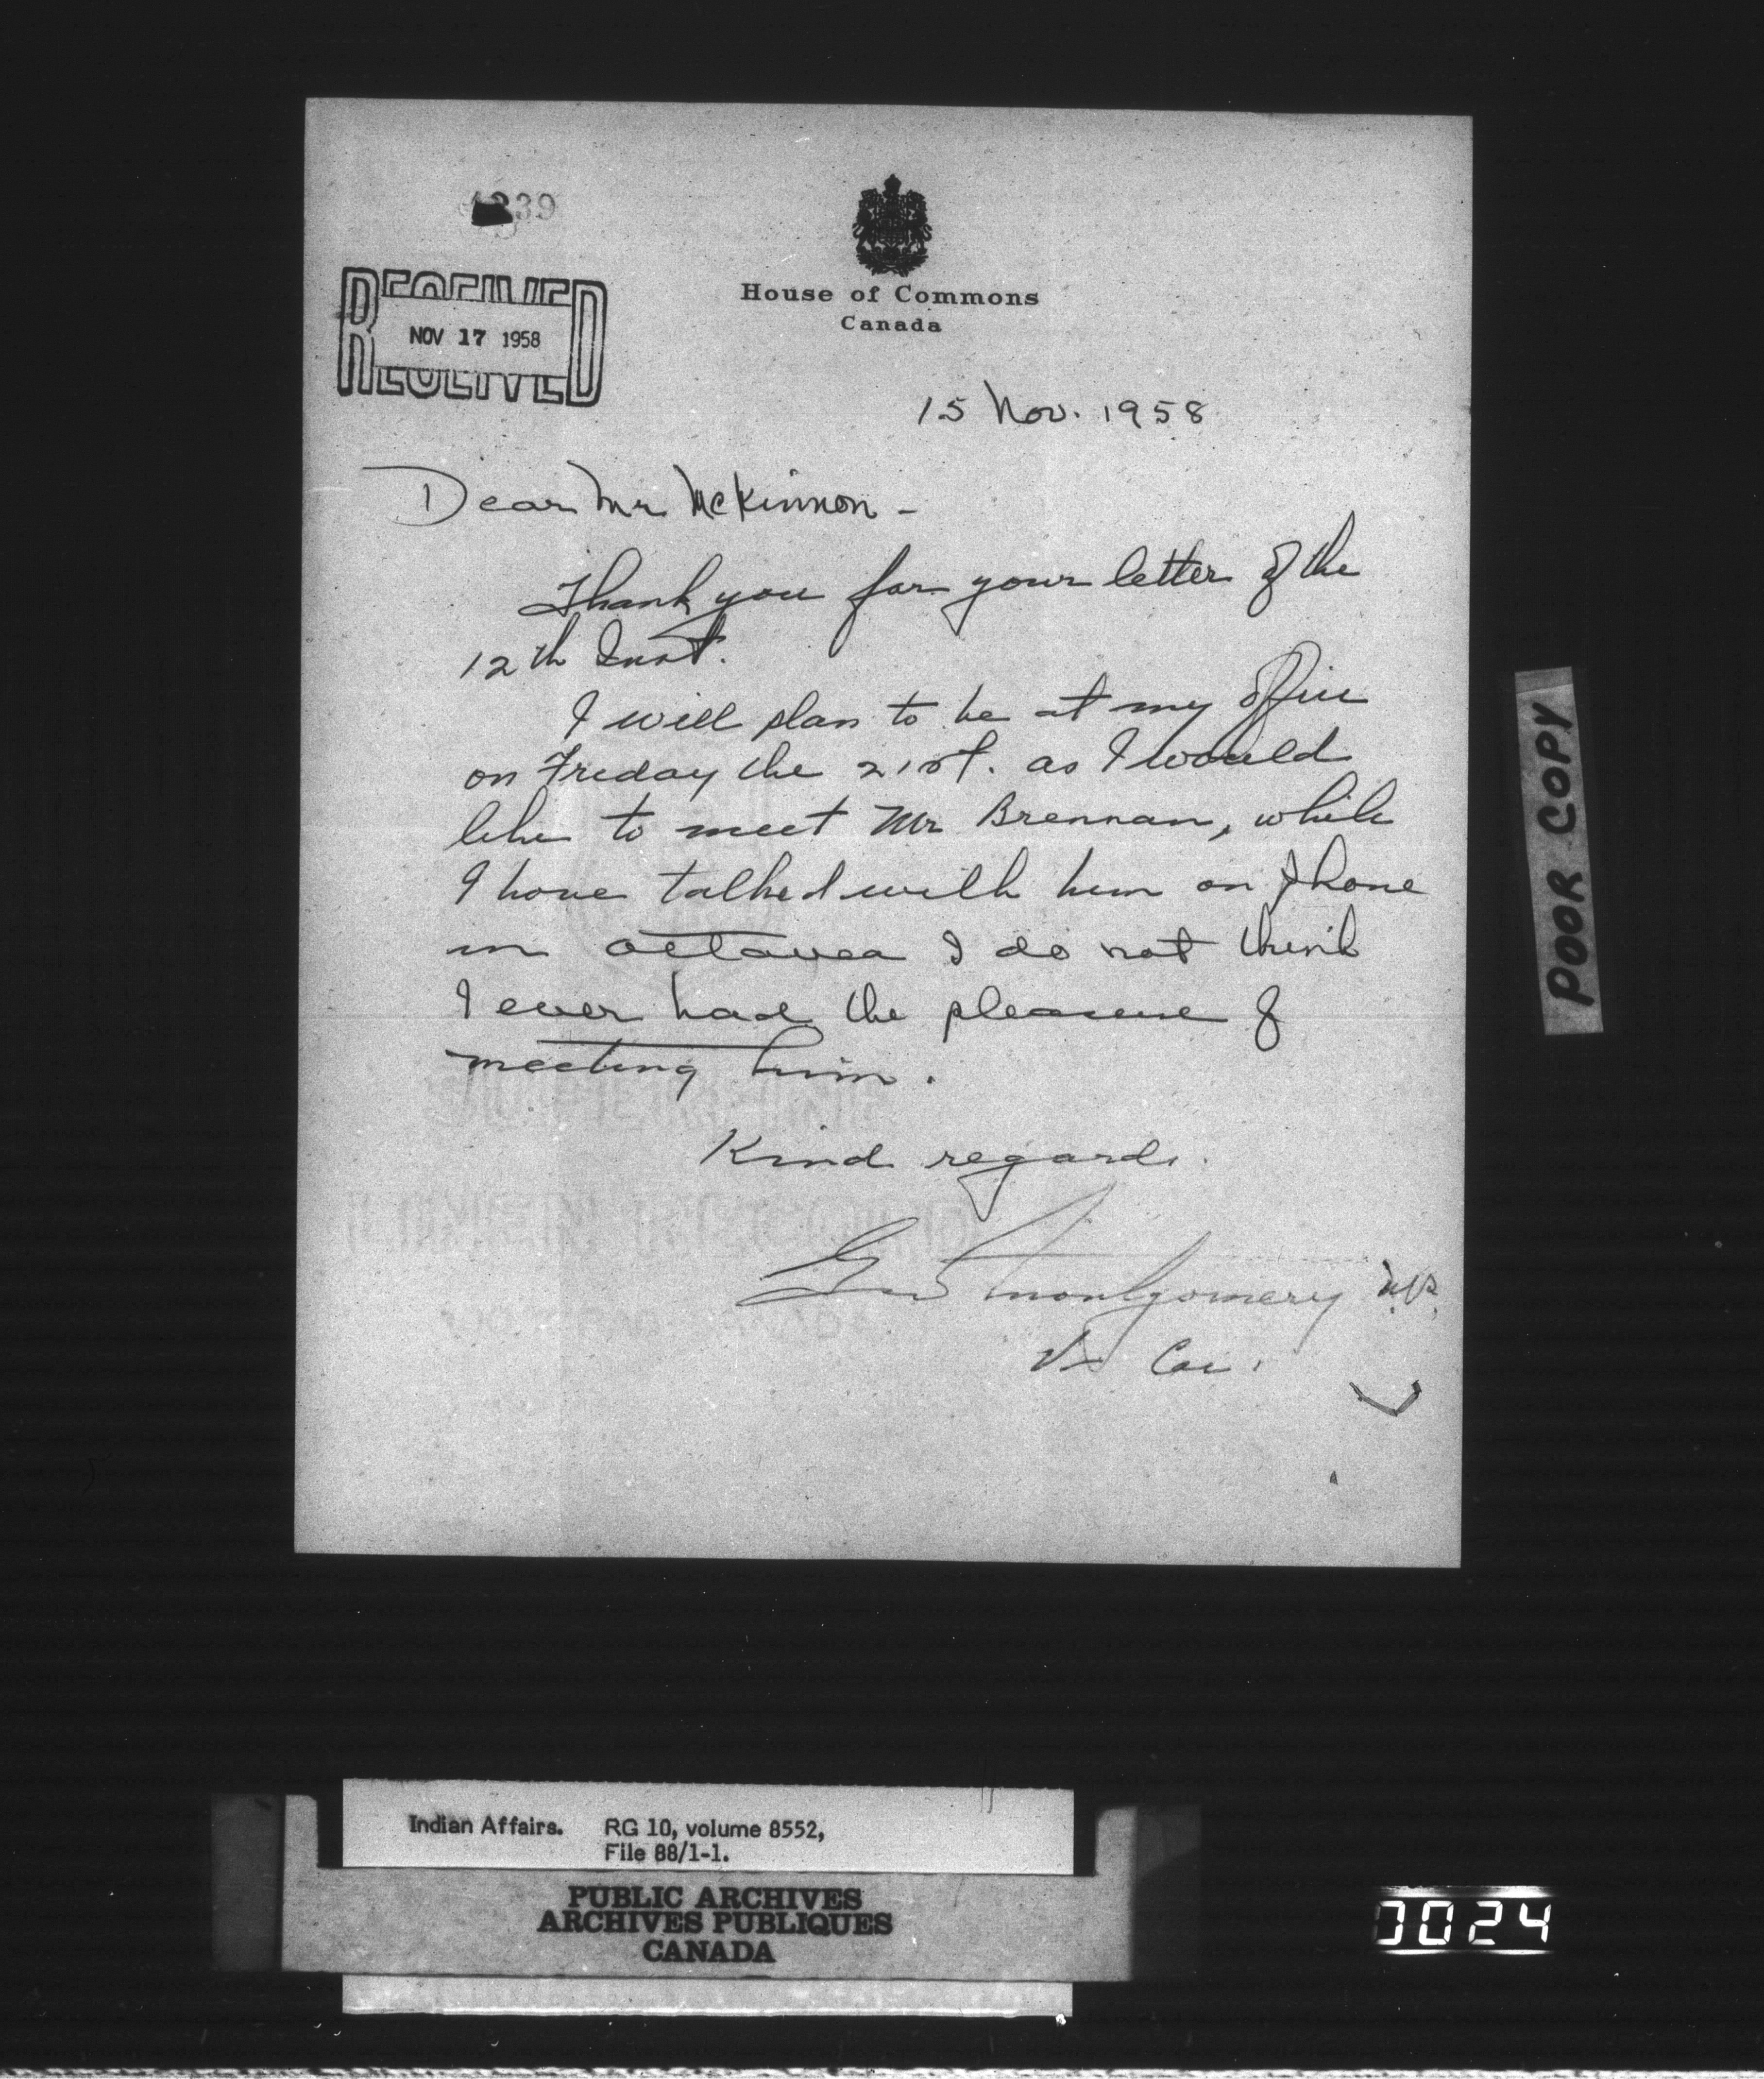 39
RECEIVED
NOV 17 1958
RECEIVED
House of Commons
Canada
15 Nov. 1958
Dear Mr McKinnon -
Thank you for your letter of the
12th Inst.
I will plan to be at my office
on Friday the 21st. as I would
like to meet Mr Brennan, while
I have talked with him on phone
in Ottawa I do not think
I ever had the pleasure of
meeting him.
Kind regards.
Montgomery M.P.
Vic Car.
POOR COPY
Indian Affairs. RG 10, volume 8552,
File 88/1-1.
PUBLIC ARCHIVES
ARCHIVES PUBLIQUES
CANADA
0024